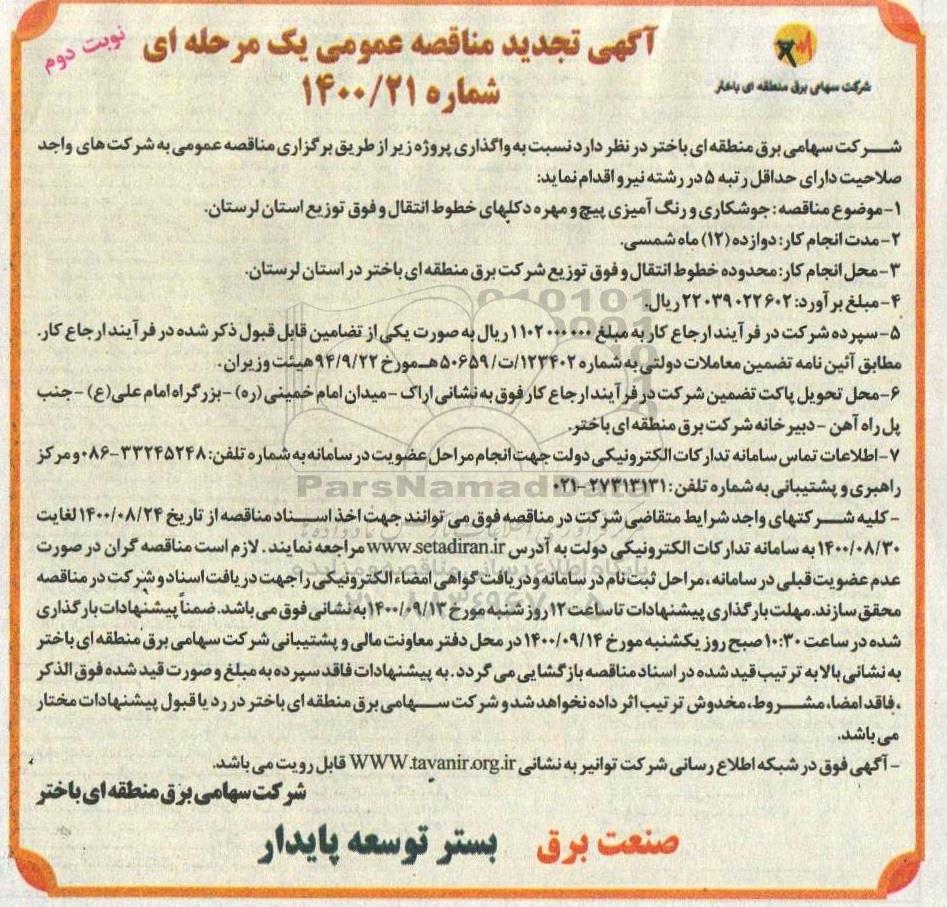 آگهی تجدید مناقصه عمومی یک مرحله ای
شماره ۱۴۰۰/۲۱
نوبت دوم
شرکت سهامی برق منطقه ای باختر
شرکت سهامی برق منطقه ای باختر در نظر دارد نسبت به واگذاری پروژه زیر از طریق برگزاری مناقصه عمومی به شرکت های واجد
صلاحیت دارای حداقل رتبه ۵ در رشته نیرو اقدام نماید:
۱-موضوع مناقصه: جوشکاری و رنگ آمیزی پیچ و مهره دکلهای خطوط انتقال و فوق توزیع استان لرستان.
۲-مدت انجام کار: دوازده (۱۲) ماه شمسی.
۳-محل انجام کار: محدوده خطوط انتقال و فوق توزیع شرکت برق منطقه ای باختر در استان لرستان.
۴-مبلغ برآورد: ۲۲۰۳۹۰۲۲۶۰۲ ریال.
۵-سپرده شرکت در فرآیند ارجاع کار به مبلغ ۱۱۰۲۰۰۰۰۰۰ ریال به صورت یکی از تضامین قابل قبول ذکر شده در فرآیند ارجاع کار.
مطابق آئین نامه تضمین معاملات دولتی به شماره ۱۲۳۴۰۲/ت/۵۰۶۵۹هـ مورخ ۹۴/۹/۲۲ هیئت وزیران.
۶-محل تحویل پاکت تضمین شرکت در فرآیند ارجاع کار فوق به نشانی اراک -میدان امام خمینی (ره) -بزرگراه امام علی(ع) -جنب
پل راه آهن -دبیرخانه شرکت برق منطقه ای باختر.
۷-اطلاعات تماس سامانه تدارکات الکترونیکی دولت جهت انجام مراحل عضویت در سامانه به شماره تلفن: ۳۳۲۴۵۲۴۸-۰۸۶ و مرکز
راهبری و پشتیبانی به شماره تلفن: ۲۷۳۱۳۱۳۱-۰۲۱
-کلیه شرکتهای واجد شرایط متقاضی شرکت در مناقصه فوق می توانند جهت اخذ اسناد مناقصه از تاریخ ۱۴۰۰/۰۸/۲۴ لغایت
۱۴۰۰/۰۸/۳۰ به سامانه تدارکات الکترونیکی دولت به آدرس www.setadiran.ir مراجعه نمایند. لازم است مناقصه گران در صورت
عدم عضویت قبلی در سامانه، مراحل ثبت نام در سامانه و دریافت گواهی امضاء الکترونیکی را جهت دریافت اسناد و شرکت در مناقصه
محقق سازند. مهلت بارگذاری پیشنهادات تا ساعت ۱۲ روز شنبه مورخ ۱۴۰۰/۰۹/۱۳ به نشانی فوق می باشد. ضمناً پیشنهادات بارگذاری
شده در ساعت ۱۰:۳۰ صبح روز یکشنبه مورخ ۱۴۰۰/۰۹/۱۴ در محل دفتر معاونت مالی و پشتیبانی شرکت سهامی برق منطقه ای باختر
به نشانی بالا به ترتیب قید شده در اسناد مناقصه بازگشایی می گردد. به پیشنهادات فاقد سپرده به مبلغ و صورت قید شده فوق الذکر
، فاقد امضا، مشروط، مخدوش ترتیب اثر داده نخواهد شد و شرکت سهامی برق منطقه ای باختر در رد یا قبول پیشنهادات مختار
می باشد.
-آگهی فوق در شبکه اطلاع رسانی شرکت توانیر به نشانی WWW.tavanir.org.ir قابل رویت می باشد.
شرکت سهامی برق منطقه ای باختر
صنعت برق بستر توسعه پایدار
ParsNamadData